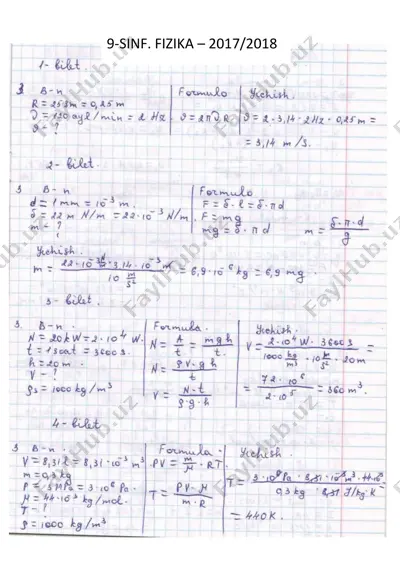 9-SINF. FIZIKA – 2017/2018
1- bilet.
3 B-n
R = 25sm = 0,25m
ν = 120 ayl/min = 2 Hz
ϑ - ?
Formulo
ϑ = 2πνR
Yechish.
ϑ = 2·3,14·2Hz·0,25m =
= 3,14 m/s.
2- bilet.
3 B-n
d = 1mm = 10⁻³m
σ = 22m N/m = 22·10⁻³ N/m
m - ?
Formulo
F = σ·l = σ·πd
F = mg
mg = σ·πd
m = σ·π·d / g
Yechish
m = 22·10⁻³ N/m · 3,14·10⁻³ m / 10 m/s² = 6,9·10⁻⁶ kg = 6,9 mg.
3- bilet.
3. B-n.
N = 20kW = 2·10⁴ W.
t = 1soat = 3600s.
h = 20m.
V - ?
ρs = 1000 kg/m³
Formula.
N = A/t = mgh/t
N = ρV·gh/t
V = N·t/ρ·g·h
Yechish.
V = 2·10⁴W · 3600s / 1000 kg/m³ · 10 m/s² · 20m =
= 72·10⁶ / 2·10⁵ = 360m³.
4- bilet
3 B-n.
V = 8,31l = 8,31·10⁻³ m³
m = 0,3 kg
P = 3 MPa = 3·10⁶ Pa.
M = 44·10⁻³ kg/mol.
T - ?
ρ = 1000 kg/m³
Formula.
PV = m/M · RT
T = PV·M / m·R
Yechish.
T = 3·10⁶Pa · 8,31·10⁻³m³ · 44·10⁻³ / 0,3 kg · 8,31 J/kg·K =
= 440K.
FaylHub.uz